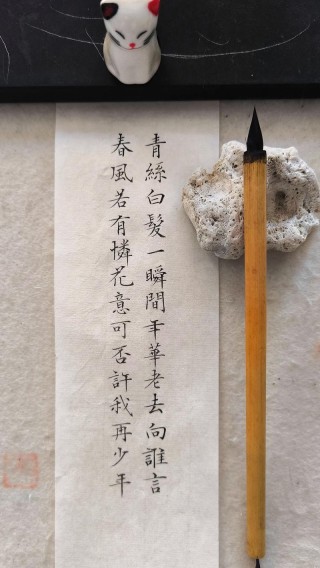 青絲白髮一瞬間年華老去向誰言
春風若有憐花意可否許我再少年